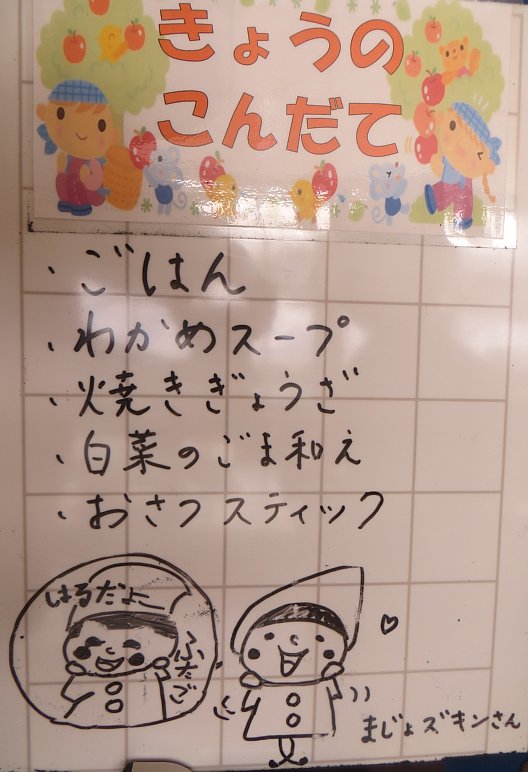 きょうの
こんだて
・ごはん
・わかめスープ
・焼きぎょうざ
・白菜のごま和え
・おさつスティック
はるだよー
ふたご
まじょズキンさん